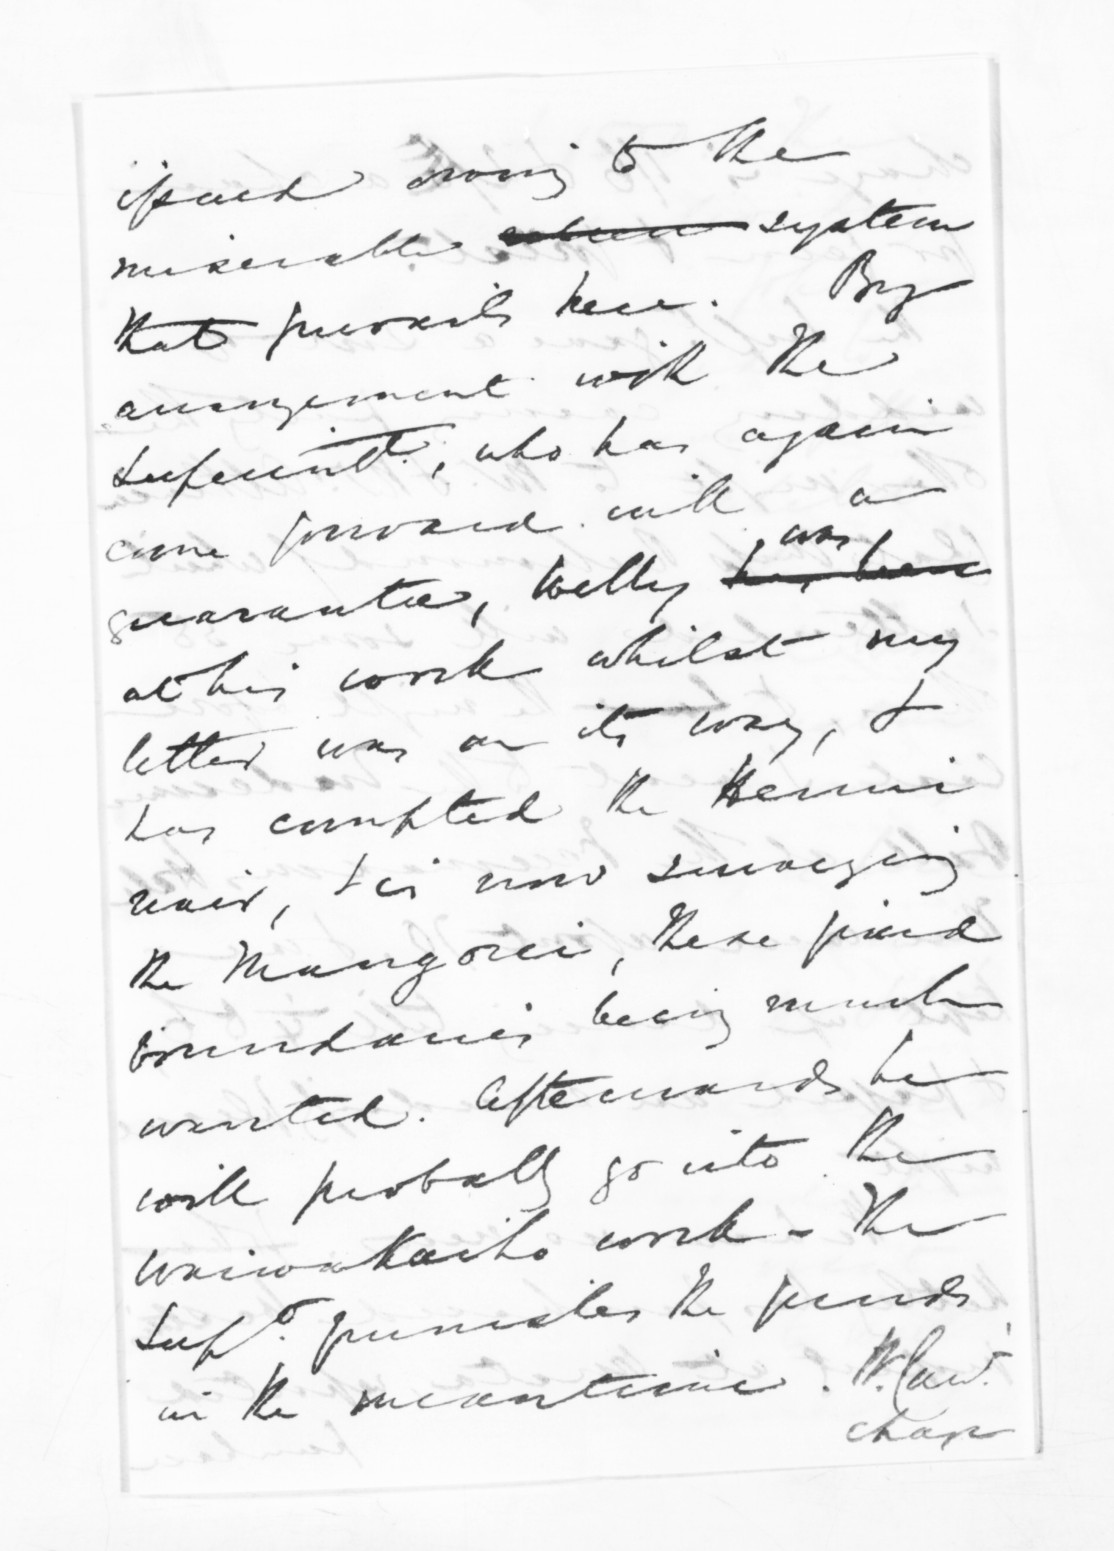 issued owing to the
miserable system
that prevails here. By
arrangement with the
Superintt., who has again
come forward with a
guarantee, Welly was
at his work whilst my
letter was on its way, &
has completed the Henui
road, & is now surveying
the Mangorei, these
boundaries being much
wanted. Afterwards he
will probably go into the
Waiwakaiho work – The
Supt. furnishes the funds
in the meantime.